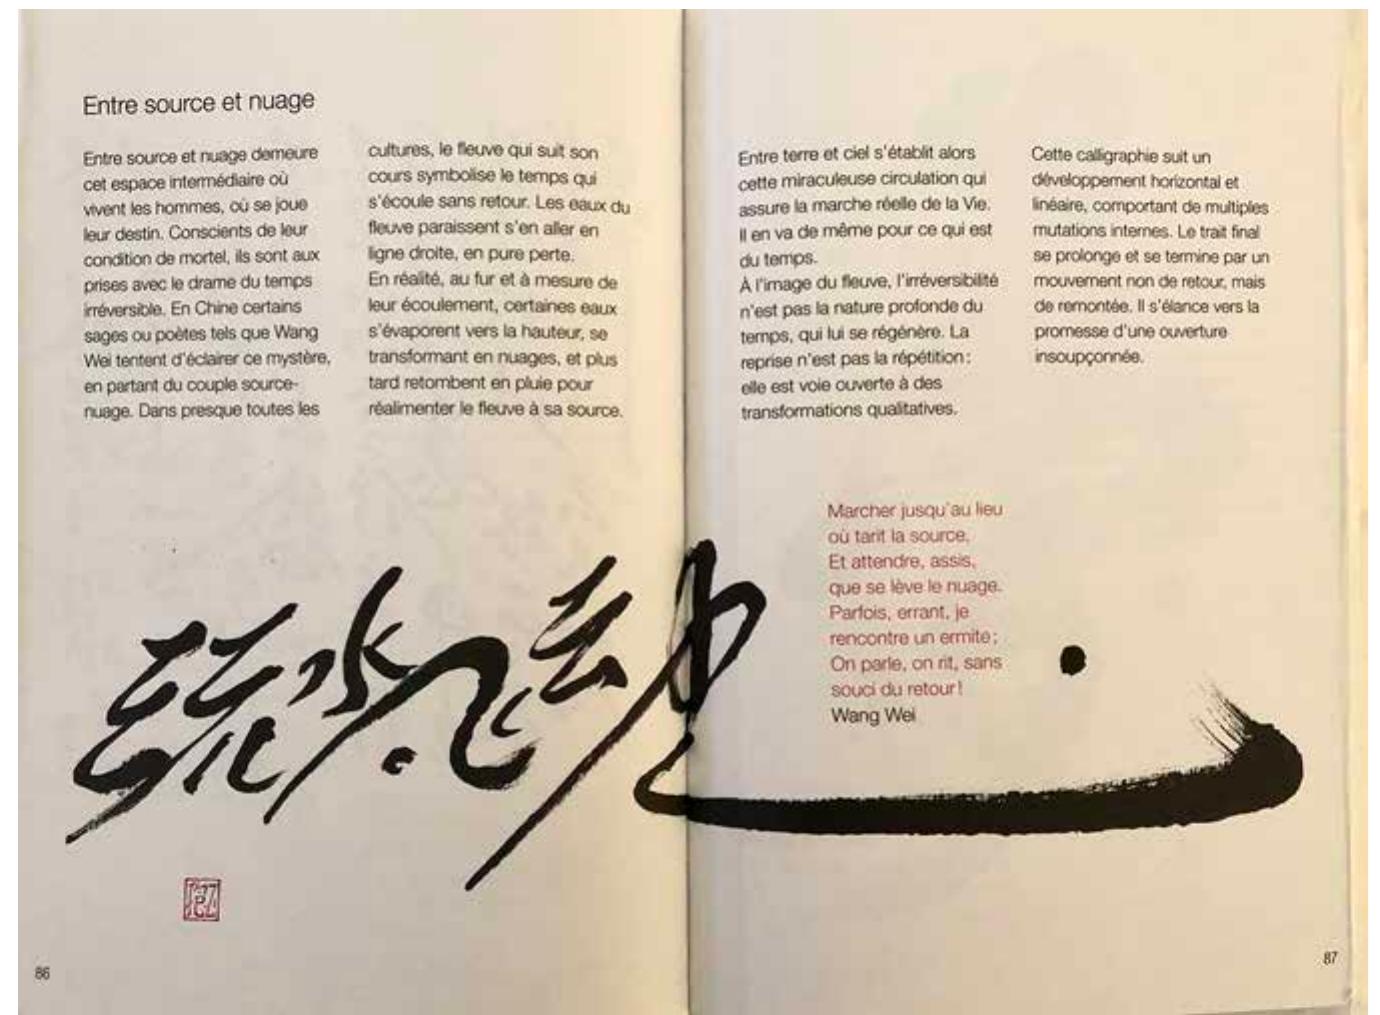 Entre source et nuage
Entre source et nuage demeure
cet espace intermédiaire où
vivent les hommes, où se joue
leur destin. Conscients de leur
condition de mortel, ils sont aux
prises avec le drame du temps
irréversible. En Chine certains
sages ou poètes tels que Wang
Wei tentent d'éclairer ce mystère,
en partant du couple source-
nuage. Dans presque toutes les
cultures, le fleuve qui suit son
cours symbolise le temps qui
s'écoule sans retour. Les eaux du
fleuve paraissent s'en aller en
ligne droite, en pure perte.
En réalité, au fur et à mesure de
leur écoulement, certaines eaux
s'évaporent vers la hauteur, se
transformant en nuages, et plus
tard retombent en pluie pour
réalimenter le fleuve à sa source.
86
Entre terre et ciel s'établit alors
cette miraculeuse circulation qui
assure la marche réelle de la Vie.
Il en va de même pour ce qui est
du temps.
À l'image du fleuve, l'irréversibilité
n'est pas la nature profonde du
temps, qui lui se régénère. La
reprise n'est pas la répétition :
elle est voie ouverte à des
transformations qualitatives.
Cette calligraphie suit un
développement horizontal et
linéaire, comportant de multiples
mutations internes. Le trait final
se prolonge et se termine par un
mouvement non de retour, mais
de remontée. Il s'élance vers la
promesse d'une ouverture
insoupçonnée.
Marcher jusqu'au lieu
où tarit la source,
Et attendre, assis,
que se lève le nuage.
Parfois, errant, je
rencontre un ermite ;
On parle, on rit, sans
souci du retour !
Wang Wei
87